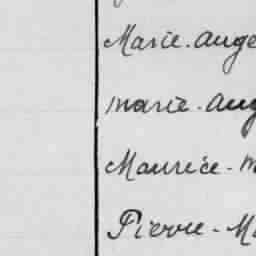 Marie-Ange
Marie-Aug
Maurice-M
Pierre-Ma